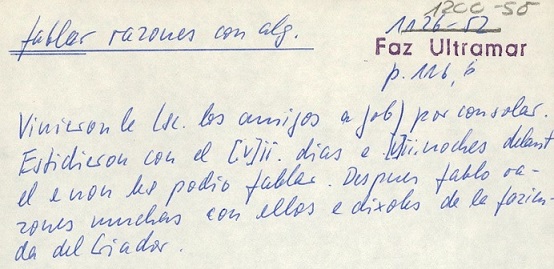 1200-50
fablar razones con alg.
1126-52
Faz Ultramar
p. 116, b
Vinieron le (sc. los amigos a Job) por consolar.
Estidieron con el [v]ii. dias e [v]ii. noches delant
el e non le podio fablar. Despues fablo ra-
zones muchas con ellos e dixoles de la fazien-
da del Criador.